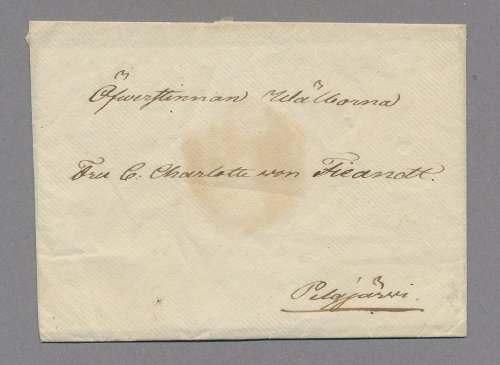 Öfwerstinnan Wälborna
Fru C. Charlotte von Fieandt.
Pelgjärvi.